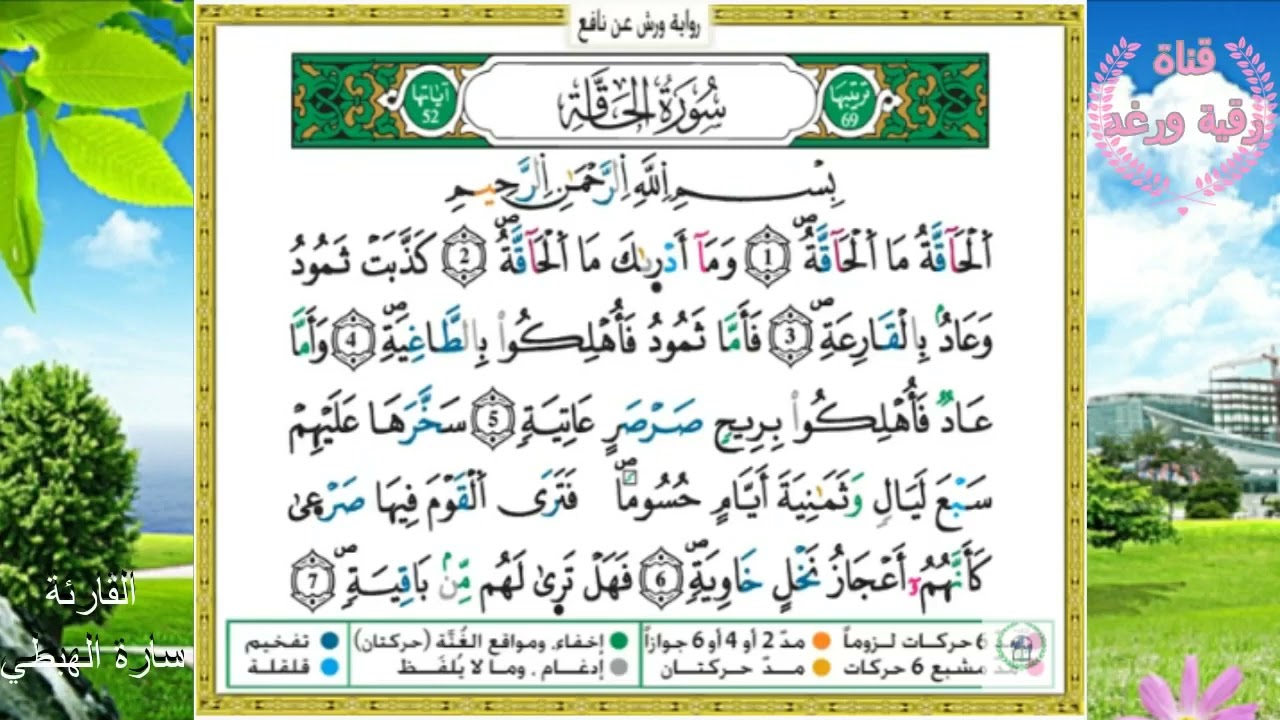 رواية ورش عن نافع
ترتيبها 69
سُورَةُ الحَاقَّةِ
آياتها 52
بِسْمِ اِللَّهِ اِلرَّحْمَٰنِ اِلرَّحِيمِ
اَلْحَآقَّةُ مَا اَلْحَآقَّةُۖ 1 وَمَآ أَدْر۪يٰكَ مَا اَلْحَآقَّةُۖ 2 كَذَّبَتْ ثَمُودُ
وَعَادُۢ بِالْقَارِعَةِۖ 3 فَأَمَّا ثَمُودُ فَأُهْلِكُواْ بِالطَّاغِيَةِۖ 4 وَأَمَّا
عَادٞ فَأُهْلِكُواْ بِرِيحٖ صَرْصَرٍ عَاتِيَةٖ 5 سَخَّرَهَا عَلَيْهِمْ
سَبْعَ لَيَالٖ وَثَمَٰنِيَةَ أَيَّامٍ حُسُوماٗۖ فَتَرَى اَلْقَوْمَ فِيهَا صَرْع۪يٰ
كَأَنَّهُمُۥٓ أَعْجَازُ نَخْلٍ خَاوِيَةٖۖ 6 فَهَلْ تَر۪يٰ لَهُم مِّنۢ بَاقِيَةٖۖ 7
6 حركات لزوماً
مدّ 2 أو 4 أو 6 جوازاً
إخفاء، ومواقع الغُنَّة (حركتان)
تفخيم
مد مشبع 6 حركات
مدّ حركتان
إدغام ، وما لا يُلفَظ
قلقلة
قناة
رقية ورغد
القارئة
سارة الهبطي